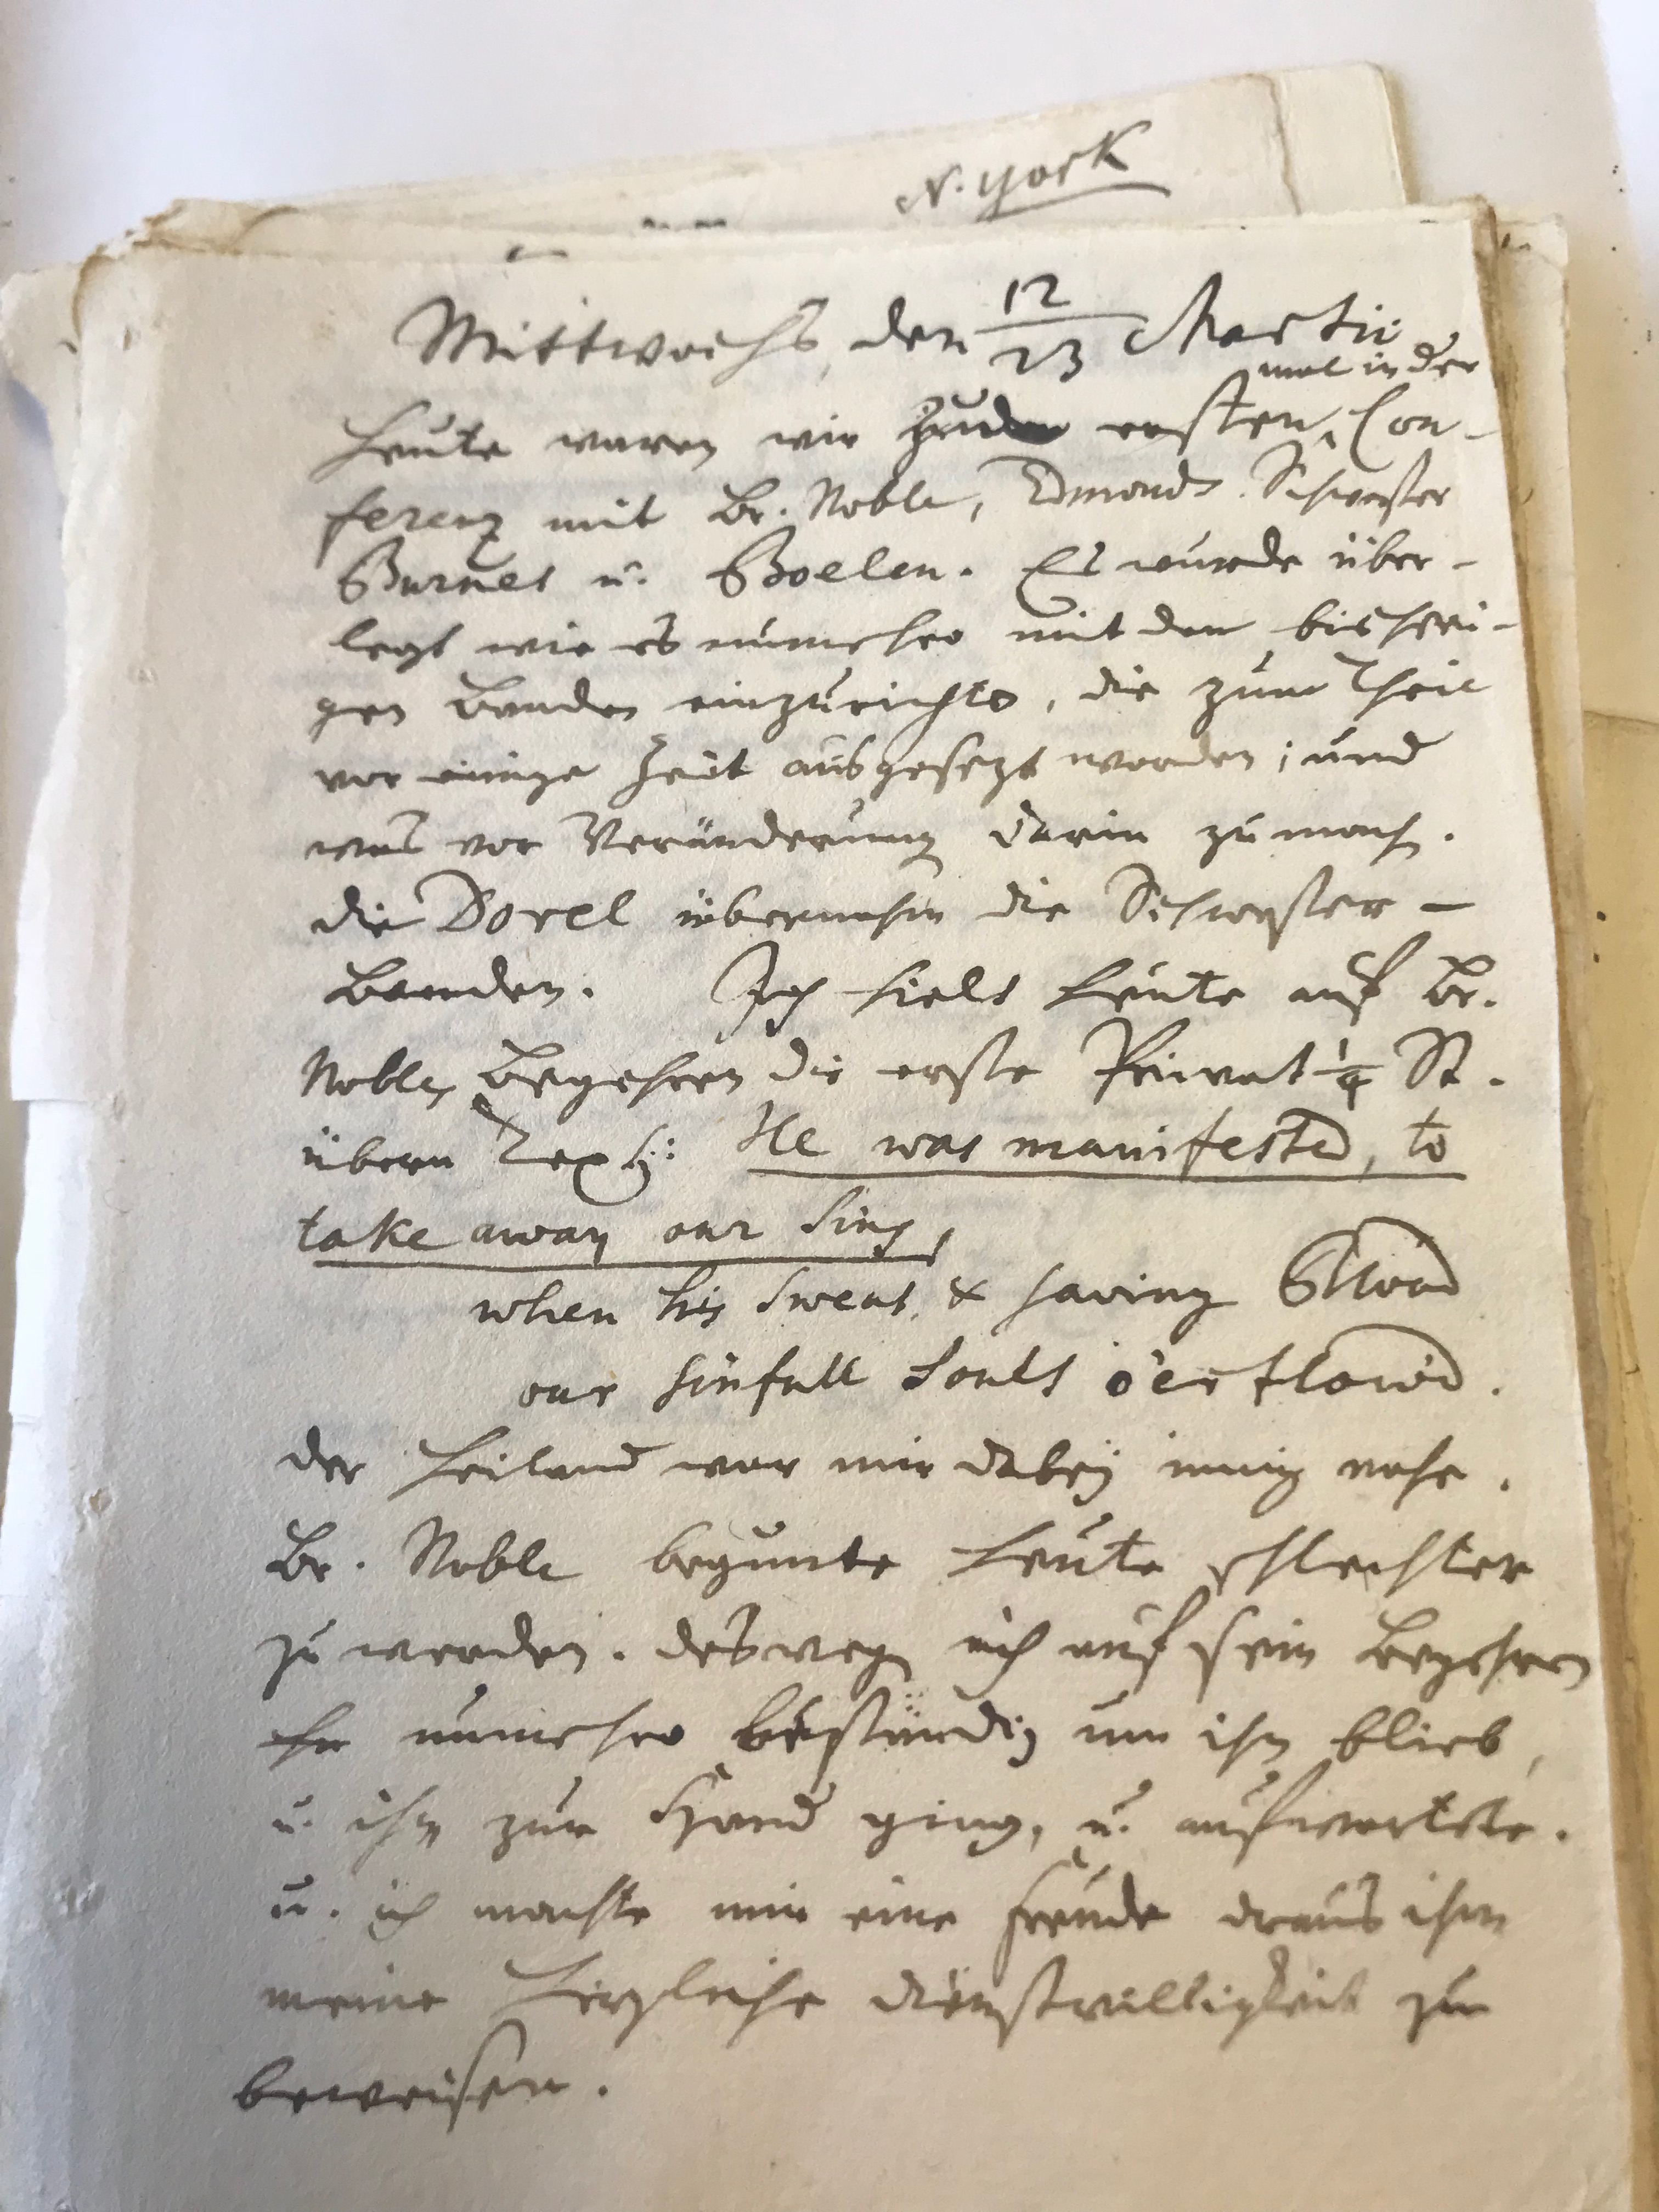 N. York
Mittwochs, den 12/23 Martii
mal in der
Heute waren wir zum ersten Con-
ferenz mit Br. Noble, Edmonds. Schwester
Burnet u. Boelen. Es wurde über-
legt wie es nunmehro mit den bisheri-
gen Banden einzurichten, die zum Theil
vor einige Zeit ausgesezt worden; und
was vor Veränderung darin zu mach.
die Dorel übernahm die Schwester-
Banden. Ich hielt heute auf Br.
Nobles Begehren die erste Privat 1/4 St.
übern Text: He was manifested, to
take away our Sins,
when his Sweat, & saving Bloud
our sinfull Souls o'erflow'd.
der Heiland war mir dabey innig nahe.
Br. Noble begunte heute schlechter
zu werden. deswegen ich auf sein Begehren
nunmehro beständig um ihn blieb,
u. ihm zur Hand ging, u. aufwartete.
u. ich machte mir eine Freude draus ihm
meine herzliche Dienstwilligkeit zu
beweisen.